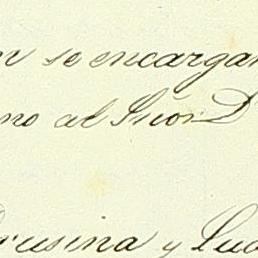 n se encargan
no al Señor D
rusina y Lud